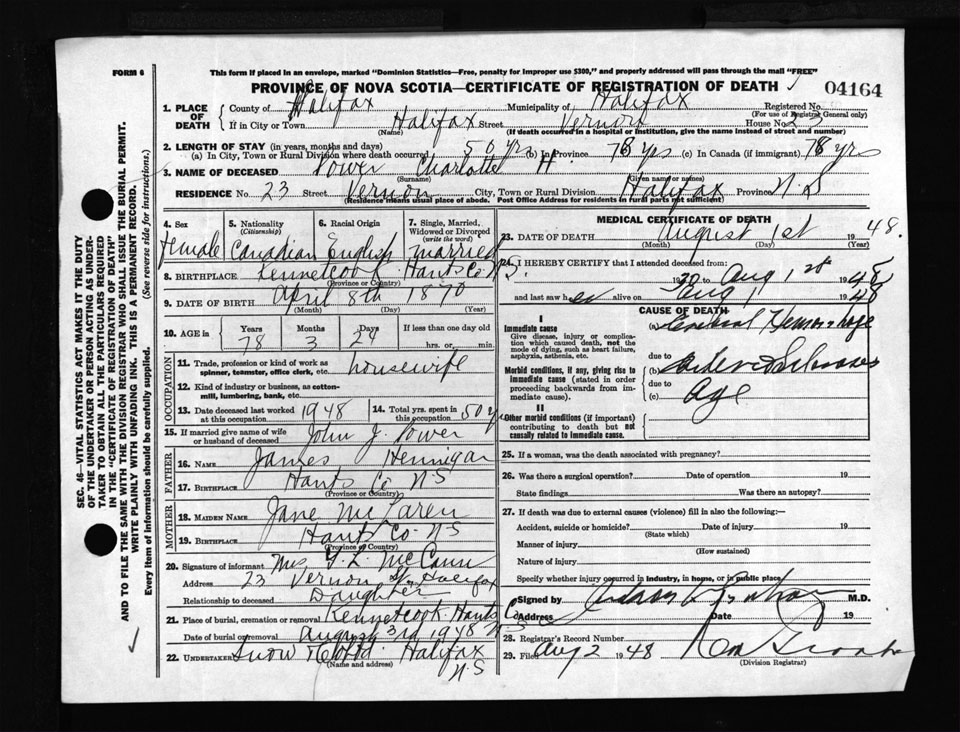 FORM 6
This form if placed in an envelope, marked "Dominion Statistics—Free, penalty for improper use $300," and properly addressed will pass through the mail "FREE"
PROVINCE OF NOVA SCOTIA—CERTIFICATE OF REGISTRATION OF DEATH
04164
1. PLACE OF DEATH
County of Halifax Municipality of Halifax Registered No.
(For use of Registrar General only)
If in City or Town Halifax Street Vernon House No. 23
(Name) (If death occurred in a hospital or institution, give the name instead of street and number)
2. LENGTH OF STAY (in years, months and days)
(a) In City, Town or Rural Division where death occurred 50 yrs (b) In Province 78 yrs (c) In Canada (if immigrant) 78 yrs
3. NAME OF DECEASED Power Charlotte H
(Surname) (Given name or names)
RESIDENCE No. 23 Street Vernon City, Town or Rural Division Halifax Province N.S
(Residence means usual place of abode. Post Office Address for residents in rural parts not sufficient)
4. Sex
female
5. Nationality
(Citizenship)
Canadian
6. Racial Origin
English
7. Single, Married, Widowed or Divorced
(write the word)
married
8. BIRTHPLACE Kennetcook Hants Co N.S.
(Province or Country)
9. DATE OF BIRTH April 8th 1870
(Month) (Day) (Year)
10. AGE in
Years Months Days If less than one day old
78 3 24 hrs. or min.
OCCUPATION
11. Trade, profession or kind of work as spinner, teamster, office clerk, etc. housewife
12. Kind of industry or business, as cotton-mill, lumbering, bank, etc.
13. Date deceased last worked at this occupation 1948
14. Total yrs. spent in this occupation 50 y
15. If married give name of wife or husband of deceased John J. Power
FATHER
16. NAME James Hennigar
17. BIRTHPLACE Hants Co N.S
(Province or Country)
MOTHER
18. MAIDEN NAME Jane McLaren
19. BIRTHPLACE Hants Co N.S
(Province or Country)
20. Signature of informant Mrs McCann
Address 23 Vernon St. Halifax
Relationship to deceased Daughter
21. Place of burial, cremation or removal Kennetcook Hants Co N.S
Date of burial or removal August 3rd 1948
22. UNDERTAKER Snow Halifax
(Name and address) N.S
MEDICAL CERTIFICATE OF DEATH
23. DATE OF DEATH August 1st 1948.
(Month) (Day) (Year)
24. I HEREBY CERTIFY that I attended deceased from:
to Aug 1st 1948
and last saw her alive on Aug 1 1948
CAUSE OF DEATH
I
Immediate cause
Give disease, injury or complication which caused death, not the mode of dying, such as heart failure, asphyxia, asthenia, etc.
(a) Cerebral Hemorrhage
due to
Morbid conditions, if any, giving rise to immediate cause (stated in order proceeding backwards from immediate cause).
(b) Arterio Sclerosis
due to
(c) Age
II
Other morbid conditions (if important) contributing to death but not causally related to immediate cause.
25. If a woman, was the death associated with pregnancy?
26. Was there a surgical operation? Date of operation 19
State findings Was there an autopsy?
27. If death was due to external causes (violence) fill in also the following:—
Accident, suicide or homicide? Date of injury 19
(State which)
Manner of injury
(How sustained)
Nature of injury
Specify whether injury occurred in industry, in home, or in public place
Signed by M.D.
Address Date 19
28. Registrar's Record Number
29. Filed Aug 2 1948
(Division Registrar)
SEC. 46—VITAL STATISTICS ACT MAKES IT THE DUTY
OF THE UNDERTAKER OR PERSON ACTING AS UNDER-
TAKER TO OBTAIN ALL THE PARTICULARS REQUIRED
IN THE "CERTIFICATE OF REGISTRATION OF DEATH"
AND TO FILE THE SAME WITH THE DIVISION REGISTRAR WHO SHALL ISSUE THE BURIAL PERMIT.
WRITE PLAINLY WITH UNFADING INK. THIS IS A PERMANENT RECORD.
Every item of information should be carefully supplied. (See reverse side for instructions.)